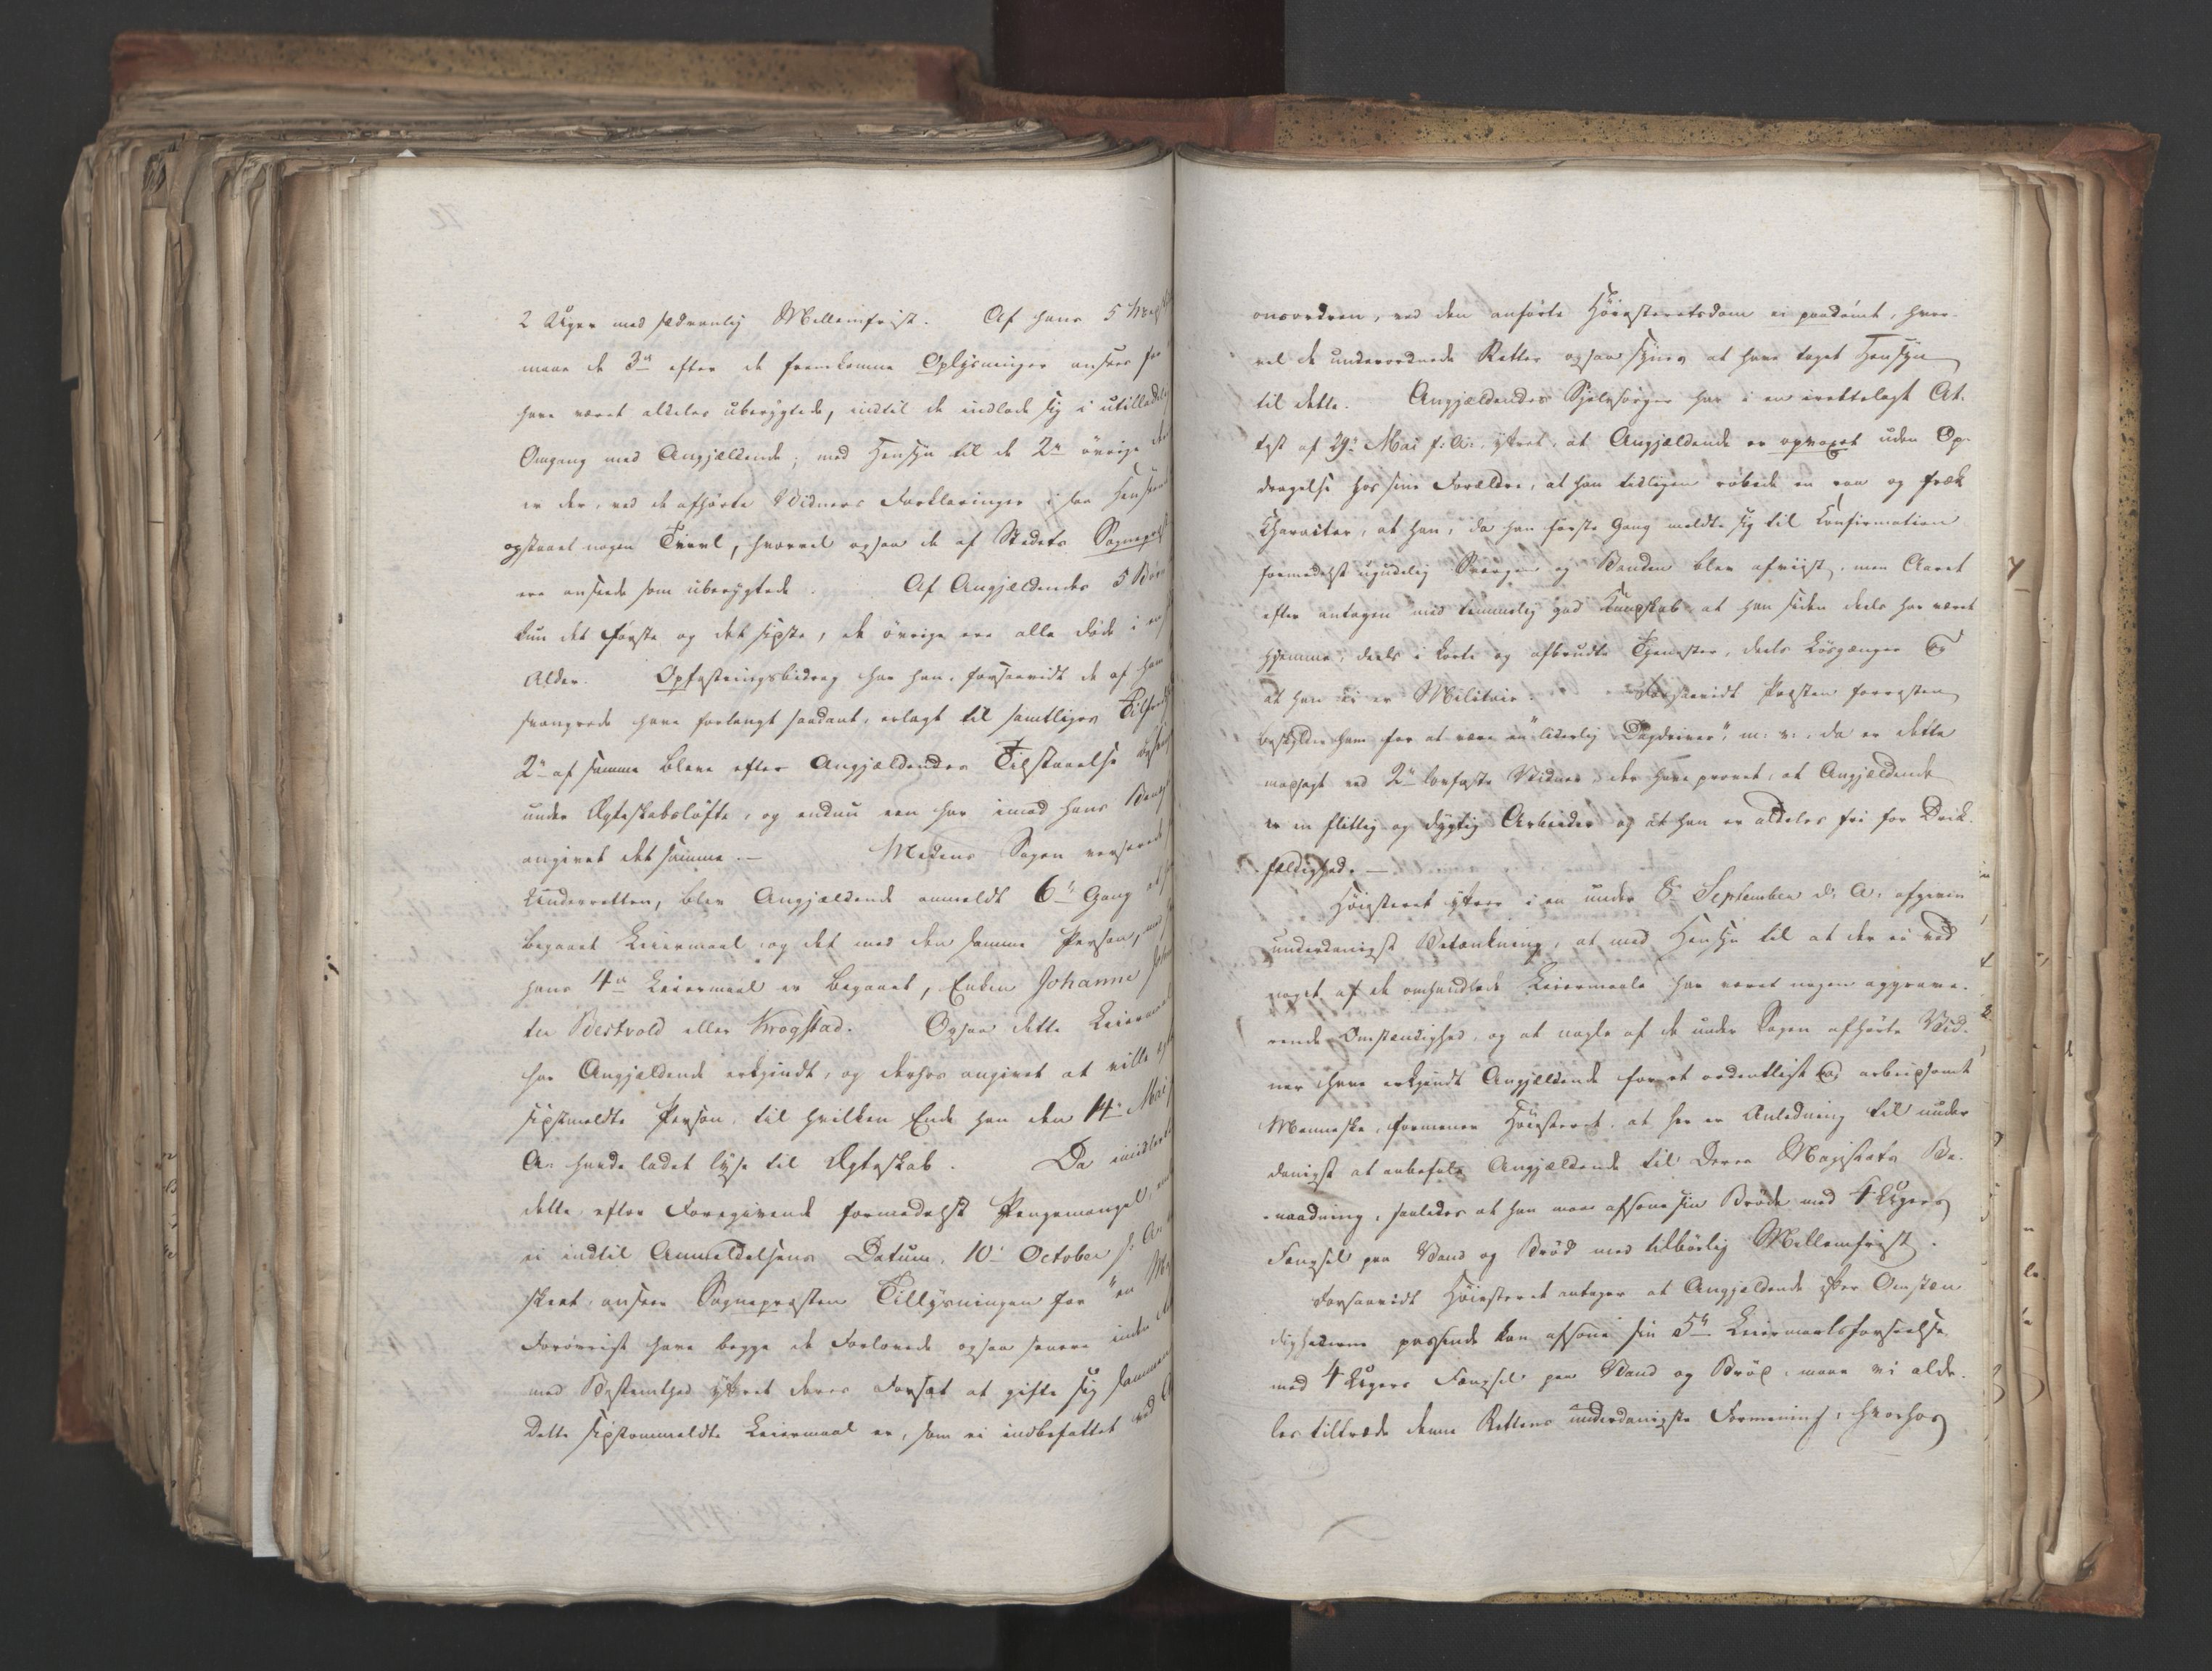 2 Uger med sædvanlig Mellemfrist. Af hans 5
maae de 3de efter de fremkomne Oplysninger ansees for
have været aldeles uberygtede, indtil de indlode sig i utilladelig
Omgang med Angjældende; med Hensyn til de 2de øvrige
er der, ved de afhørte Vidners Forklaringer i saa Henseende
opstaaet nogen Tvivl, hvorvel ogsaa de af Stedets Sognepræst
ere anseede som uberygtede. Af Angjældendes 5 Børn
kun det første og det sidste, de øvrige ere alle døde i
Alder. Opfostringsbidrag har han, forsaavidt de af ham
svangrede have forlangt saadant, erlagt til samtliges Tilfredshed
2de af samme bleve efter Angjældendes Tilstaaelse
under Ægteskabsløfte, og endnu een har imod hans
angivet det samme. — Medens Sagen verserede
Underretten, blev Angjældende anmeldt 6te Gang at
begaaet Leiermaal og det med den samme Person,
hans 4de Leiermaal er begaaet, Enken Johanne
ter Berkvold eller Krogstad. Ogsaa dette Leiermaal
har Angjældende erkjendt, og derhos angivet at ville
sidstmeldte Person, til hvilken Ende han den 14de Mai
A: havde ladet lyse til Ægteskab. Da imidlertid
dette efter Foregivende formedelst Pengemangel,
ei indtil Anmeldelsens Datum, 10de October f: A:
skeet, ansees Sognepræsten Tillysningen for "en
Forøvrigt have begge de Forlovede ogsaa senere inden
med Bestemthed yttret deres Forsæt at gifte sig sammen
Dette sidstommeldte Leiermaal er, som ei indbefattet ved
onsordren, ved den anførte Høiesteretsdom ei paadømt, hvor-
vel de underordnede Retter ogsaa synes at have taget Hensyn
til dette. Angjældendes Sjelesørger har i en irettelagt At-
test af 29de Mai f: A: yttret, at Angjældende er opvoxet uden Op-
dragelse hos sine Forældre, at han tidligen røbede en raa og fræk
Character, at han, da han første Gang meldte sig til Confirmation
formedelst ugudelig Sværgen og Banden blev afviist, men Aaret
efter antagen med temmelig god Kundskab, at han siden deels har været
hjemme, deels i korte og afbrudte Tjenester, deels Løsgænger og
at han ei er Militair. Forsaavidt Præsten forresten
beskylder ham for at være en "liderlig Dagdriver", m: v:, da er dette
modsagt ved 2de lovfaste Vidner, der have provet, at Angjældende
er en flittig og dygtig Arbeider og at han er aldeles fri for Drik-
fældighed. —
Høiesteret yttrer i en under 8de September d: A: afgiven
underdanigst Betænkning, at med Hensyn til at der ei ved
noget af de omhandlede Leiermaale har været nogen aggrave-
rende Omstændighed, og at nogle af de under Sagen afhørte Vid-
ner have erkjendt Angjældende for et ordentligt og arbeidsomt
Menneske, formener Høiesteret, at her er Anledning til under
danigst at anbefale Angjældende til Deres Majestæts Be-
naadning, saaledes at han maa afsone sin Brøde med 4 Ugers
Fængsel paa Vand og Brød med tilbørlig Mellemfrist.
Forsaavidt Høiesteret antager at Angjældende efter Omstæn
dighederne passende kan afsone sin 5te Leiermaalsforseelse
med 4 Ugers Fængsel paa Vand og Brød, maae vi alde-
les tiltræde denne Rettens underdanigste Formening, hvorhos